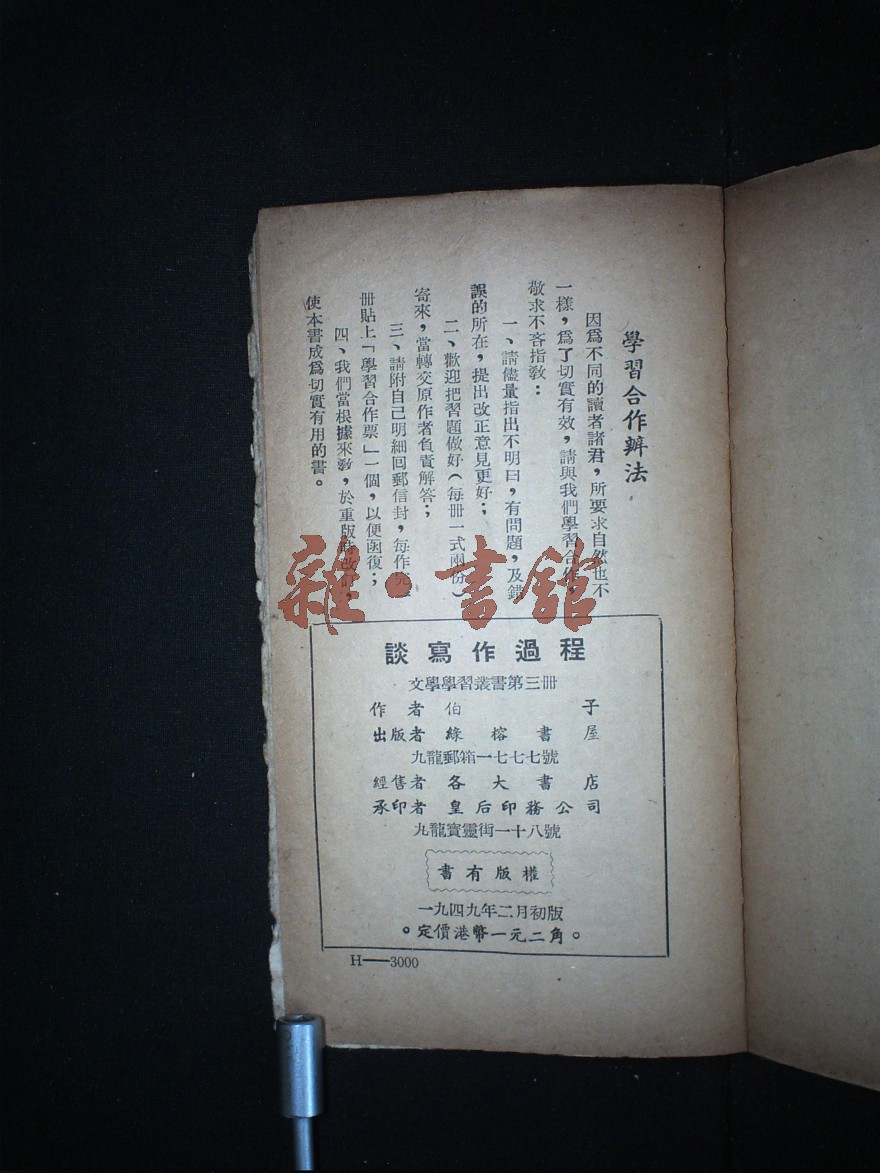 學習合作辦法
因爲不同的讀者諸君，所要求自然也不
一樣，爲了切實有效，請與我們學習合作，
敬求不吝指敎：
一、請儘量指出不明曰，有問題，及錯
誤的所在，提出改正意見更好；
二、歡迎把習題做好（每册一式兩份）
寄來，當轉交原作者負責解答；
三、請附自己明細囘郵信封，每作完
册貼上「學習合作票」一個，以便函復；
四、我們當根據來敎，於重版時改訂，
使本書成爲切實有用的書。
雜·書館
談寫作過程
文學學習叢書第三册
作者 伯子
出版者 綠榕書屋
九龍郵箱一七七七號
經售者 各大書店
承印者 皇后印務公司
九龍寶靈街一十八號
書有版權
一九四九年二月初版
。定價港幣一元二角。
H——3000